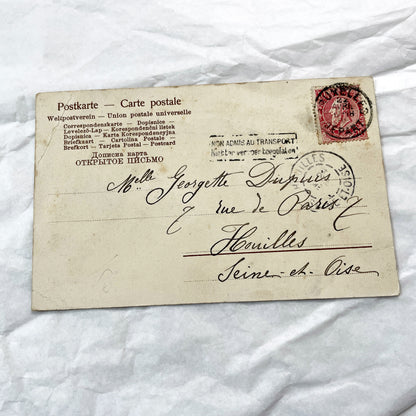 Postkarte — Carte postale
Weltpostverein — Union postale universelle
Correspondenskarte — Dopisnice —
Levelező-Lap — Korespondenční lístek
Dopisnica — Karta Korespondencyjna
Briefkaart — Cartolina Postale —
Brefkort — Tarjeta Postal — Postcard
Дописна карта
ОТКРЫТОЕ ПИСЬМО
NON ADMIS AU TRANSPORT
Melle Georgette Dupuis
7 rue de Paris 7
Houilles
Seine-et-Oise